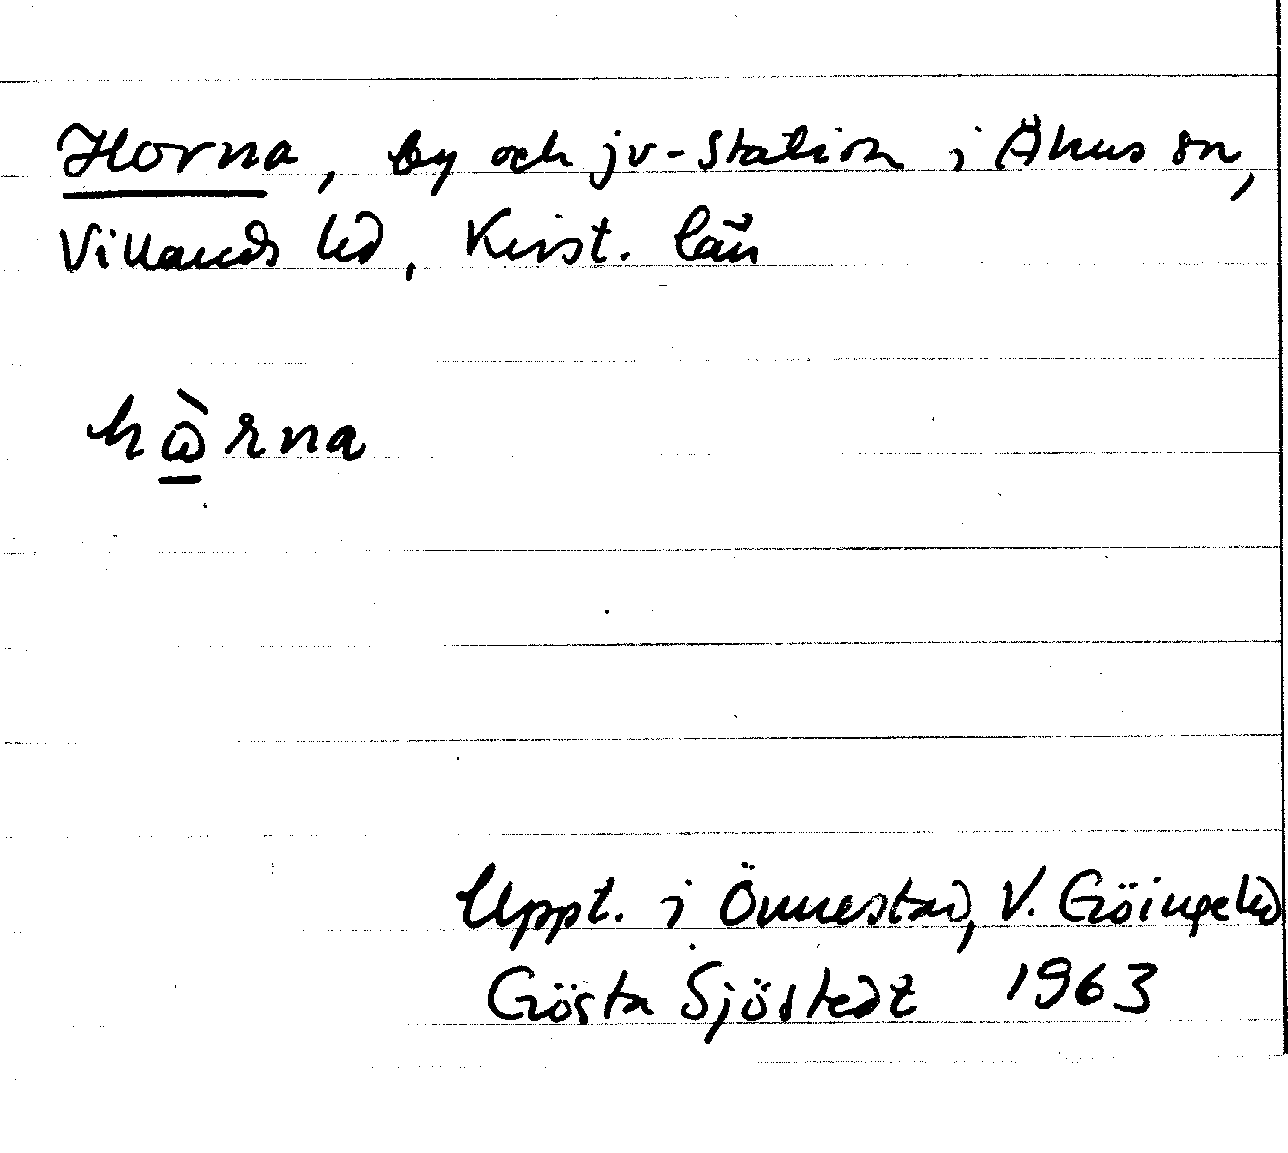 Horna, by och jv-station i Åhus sn,
Villands hd, Krist. län
hὼ̱rna
Uppt. i Önnestad, V. Göinge hd
Gösta Sjöstedt 1963